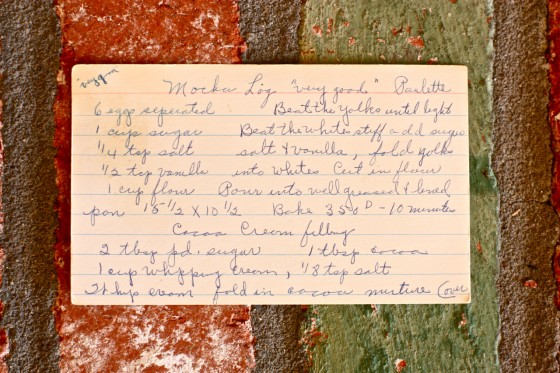 "very good"
Mocka Log "very good" Paulette
6 eggs seperated Beat the yolks until light
1 cup sugar Beat the whites stiff add sugar
1/4 tsp salt salt & vanilla, fold yolks
1/2 tsp vanilla into whites Cut in flour
1 cup flour Pour into well greased & lined
pan 15 1/2 X 10 1/2 Bake 350 D - 10 minutes
Cocoa Cream filling
2 tbsp pd. sugar 1 tbsp cocoa
1 cup whipping cream, 1/8 tsp salt
Whip cream fold in cocoa mixture (over